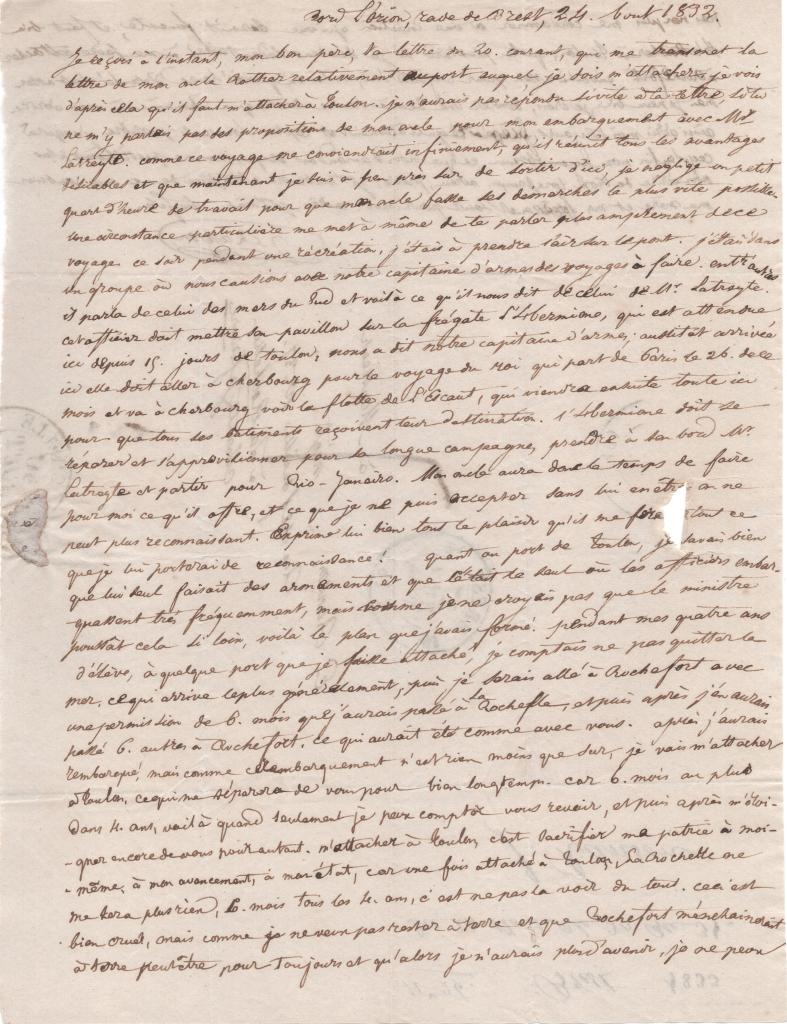 Bord l'Orion, rade de Brest, 24. Aout 1832.
Je reçois à l'instant, mon bon père, ta lettre du 20. courant, qui me transmet la
lettre de mon oncle Rother relativement au port auquel je dois m'attacher. je vois
d'après cela qu'il faut m'attacher à Toulon. je n'aurais pas répondu si vite à ta lettre, si tu
ne m'y parlais pas des propositions de mon oncle pour mon embarquement avec Mr.
Latreyte. comme ce voyage me conviendrait infiniment, qu'il réunit tous les avantages
désirables et que maintenant je suis à peu près sur de sortir d'ici, je néglige un petit
quart d'heure de travail pour que mon oncle fasse ses démarches le plus vite possible.
une circonstance particulière me met à même de te parler plus amplement de ce
voyage. ce soir pendant une récréation, j'étais à prendre l'air sur le pont. j'étais dans
un groupe où nous causions avec notre capitaine d'armes des voyages à faire. entr'autres
il parla de celui des mers du Sud et voilà ce qu'il nous dit de celui de Mr. Latreyte.
cet officier doit mettre son pavillon sur la frégate l'Hermione, qui est attendue
ici depuis 15. jours de Toulon, nous a dit notre capitaine d'armes; aussitôt arrivée
ici elle doit aller à cherbourg pour le voyage du Roi qui part de Paris le 26. de ce
mois et va à cherbourg voir la flotte de l'Escaut, qui viendra ensuite toute ici
pour que tous ses bâtiments reçoivent leur destination. l'Hermione doit se
réparer et s'approvisionner pour sa longue campagne, prendre à son bord Mr.
Latreyte et partir pour Rio-Janeiro. Mon oncle aura donc le temps de faire
pour moi ce qu'il offre, et ce que je ne puis accepter sans lui en être on ne
peut plus reconnaissant. Exprime lui bien tout le plaisir qu'il me fera tout ce
que je lui porterai de reconnaissance! quant au port de Toulon, je savais bien
que lui seul faisait des armements et que c'était le seul où les officiers embar-
quassent très fréquemment, mais comme je ne croyais pas que le ministre
poussât cela si loin, voilà le plan que j'avais formé. pendant mes quatre ans
d'élève, à quelque port que je fusse attaché, je comptais ne pas quitter la
mer. ce qui arrive le plus généralement, puis je serais allé à Rochefort avec
une permission de 6. mois que j'aurais passé à la Rochelle, et puis après j'en aurais
passé 6. autres à Rochefort. ce qui aurait été comme avec vous. après j'aurais
rembarqué, mais comme cet embarquement n'est rien moins que sur, je vais m'attacher
à Toulon, ce qui me séparera de vous pour bien longtemps. car 6. mois au plus
dans 4. ans, voilà quand seulement je peux compter vous revoir, et puis après m'éloi-
-gner encore de vous pour autant. m'attacher à Toulon c'est sacrifier ma patrie à moi-
-même, à mon avancement, à mon état, car une fois attaché à Toulon, la Rochelle ne
me sera plus rien, 6. mois tous les 4. ans, c'est ne pas la voir du tout. ceci est
bien cruel, mais comme je ne veux pas rester à terre et que Rochefort m'enchainerait
à terre peut être pour toujours et qu'alors je n'aurais plus d'avenir, je ne peux